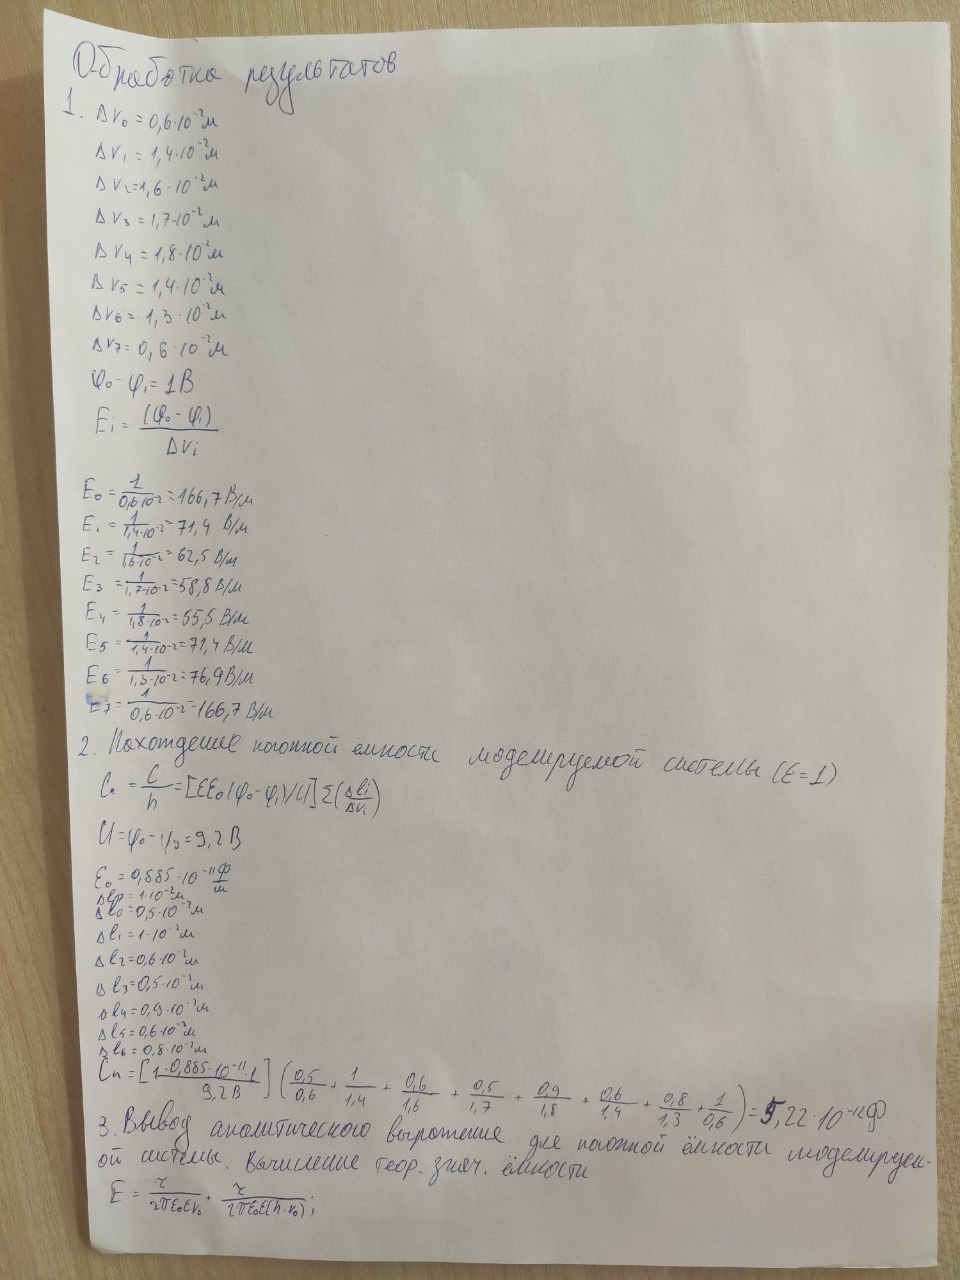 Обработка результатов
1. Δr₀ = 0,6·10⁻²м
Δr₁ = 1,4·10⁻²м
Δr₂ = 1,6·10⁻²м
Δr₃ = 1,7·10⁻²м
Δr₄ = 1,8·10⁻²м
Δr₅ = 1,4·10⁻²м
Δr₆ = 1,3·10⁻²м
Δr₇ = 0,6·10⁻²м
φ₀ - φᵢ = 1В
Eᵢ = (φ₀ - φᵢ) / Δrᵢ
E₀ = 1/0,6·10⁻² = 166,7 В/м
E₁ = 1/1,4·10⁻² = 71,4 В/м
E₂ = 1/1,6·10⁻² = 62,5 В/м
E₃ = 1/1,7·10⁻² = 58,8 В/м
E₄ = 1/1,8·10⁻² = 55,5 В/м
E₅ = 1/1,4·10⁻² = 71,4 В/м
E₆ = 1/1,3·10⁻² = 76,9 В/м
E₇ = 1/0,6·10⁻² = 166,7 В/м
2. Нахождение погонной ёмкости моделируемой системы (ε=1)
Cп = C/h = [εε₀(φ₀-φᵢ)/U] Σ(Δlᵢ/Δrᵢ)
U = φ₀ - φ₉ = 9,2 В
ε₀ = 0,885·10⁻¹¹ Ф/м
Δlр = 1·10⁻²м
Δl₀ = 0,5·10⁻²м
Δl₁ = 1·10⁻²м
Δl₂ = 0,6·10⁻²м
Δl₃ = 0,5·10⁻²м
Δl₄ = 0,9·10⁻²м
Δl₅ = 0,6·10⁻²м
Δl₆ = 0,8·10⁻²м
Cп = [1·0,885·10⁻¹¹·1 / 9,2 В] (0,5/0,6 + 1/1,4 + 0,6/1,6 + 0,5/1,7 + 0,9/1,8 + 0,6/1,4 + 0,8/1,3 + 1/0,6) = 5,22·10⁻¹²Ф
3. Вывод аналитического выражение для погонной ёмкости моделируем-
ой системы. Вычисление теор. знач. ёмкости
E = τ/2πε₀εr₀ + τ/2πε₀ε(h-r₀) ;